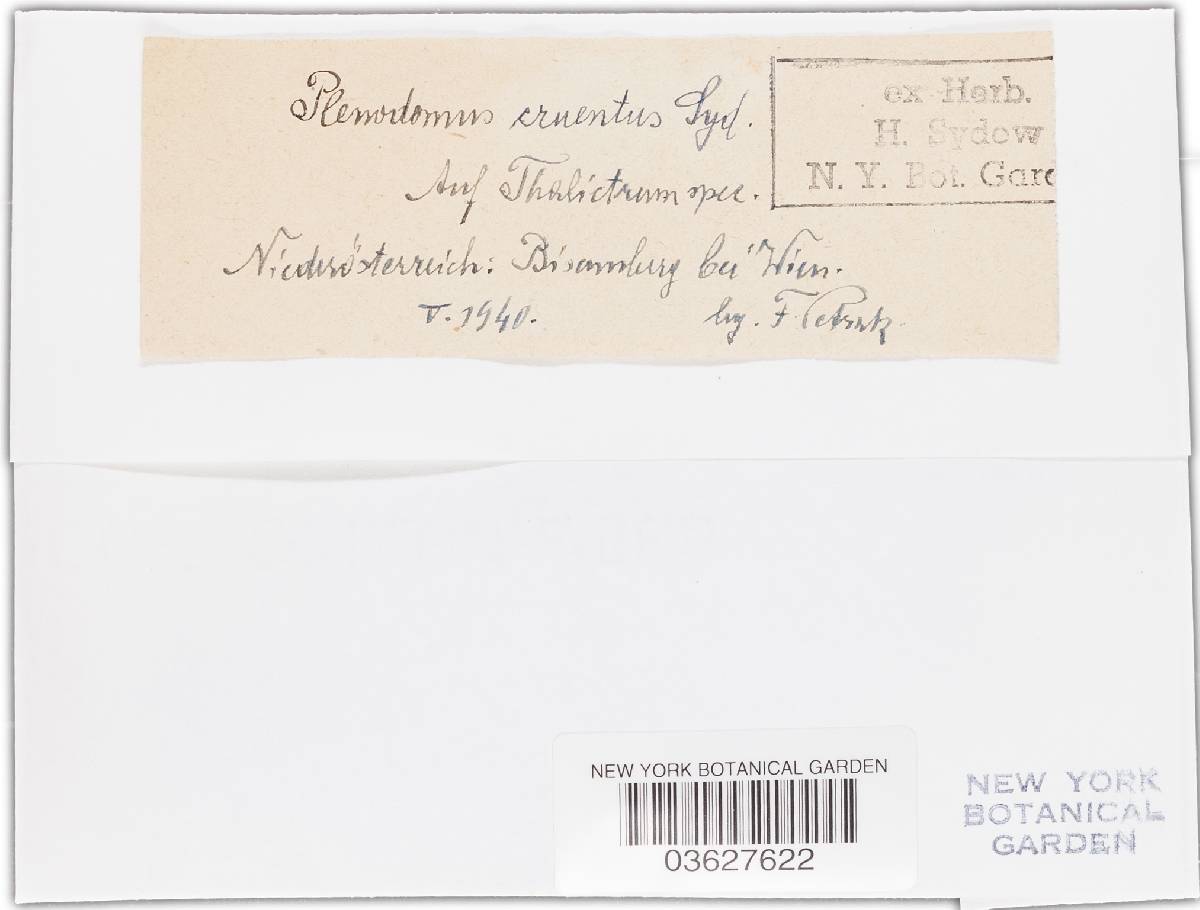 Plenodomus cruentus Syd.
Auf Thalictrum spec.
Niederösterreich: Bisamberg bei Wien.
V. 1940. leg. F. Petrak
ex Herb.
H. Sydow
N. Y. Bot. Gard
NEW YORK BOTANICAL GARDEN
03627622
NEW YORK
BOTANICAL
GARDEN